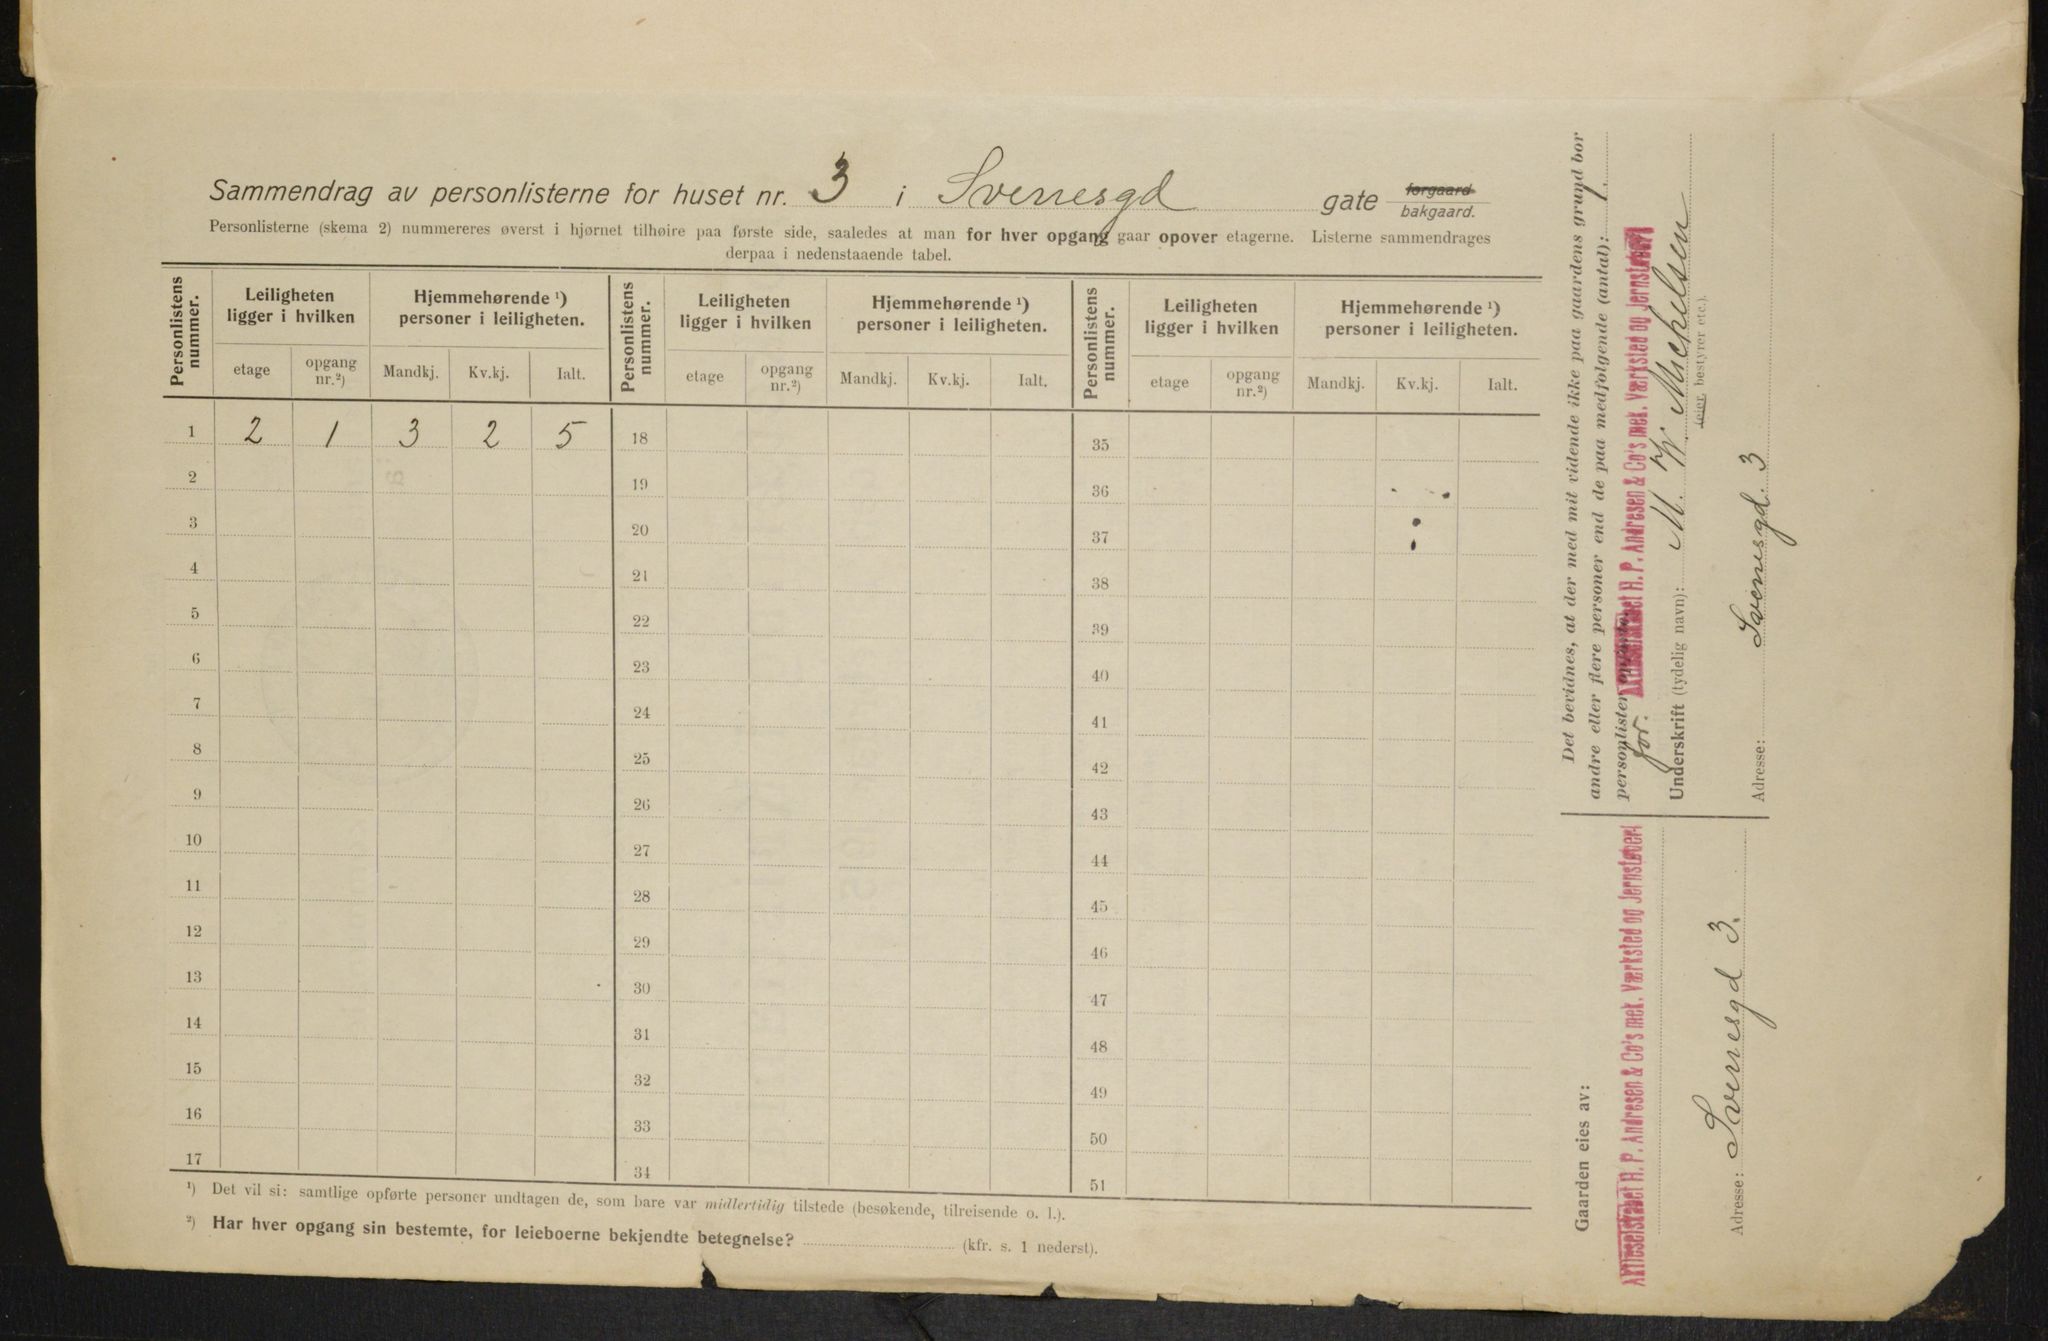 Sammendrag av personlisterne for huset nr. 3 i Svenesgd gate forgaard bakgaard.
Personlisterne (skema 2) nummereres øverst i hjørnet tilhøire paa første side, saaledes at man for hver opgang gaar opover etagerne. Listerne sammendrages
derpaa i nedenstaaende tabel.
Personlistens nummer. Leiligheten ligger i hvilken Hjemmehørende ¹) personer i leiligheten. Personlistens nummer. Leiligheten ligger i hvilken Hjemmehørende ¹) personer i leiligheten. Personlistens nummer. Leiligheten ligger i hvilken Hjemmehørende ¹) personer i leiligheten.
etage opgang nr.²) Mandkj. Kv.kj. Ialt. etage opgang nr.²) Mandkj. Kv.kj. Ialt. etage opgang nr.²) Mandkj. Kv.kj. Ialt.
1 2 1 3 2 5 18 35
2 19 36
3 20 37
4 21 38
5 22 39
6 23 40
7 24 41
8 25 42
9 26 43
10 27 44
11 28 45
12 29 46
13 30 47
14 31 48
15 32 49
16 33 50
17 34 51
¹) Det vil si: samtlige opførte personer undtagen de, som bare var midlertidig tilstede (besøkende, tilreisende o. l.).
²) Har hver opgang sin bestemte, for leieboerne bekjendte betegnelse? (kfr. s. 1 nederst).
Det bevidnes, at der med mit vidende ikke paa gaardens grund bor
andre eller flere personer end de paa medfølgende (antal): 1.
personlister opførte.
for. Aktieselskabet H. P. Andresen & Co's mek. Værksted og Jernstøberi
Underskrift (tydelig navn): M. W. Michelsen
(eier, bestyrer etc.).
Adresse: Svenesgd. 3
Gaarden eies av:
Aktieselskabet H. P. Andresen & Co's mek. Værksted og Jernstøberi
Adresse: Svenesgd 3.